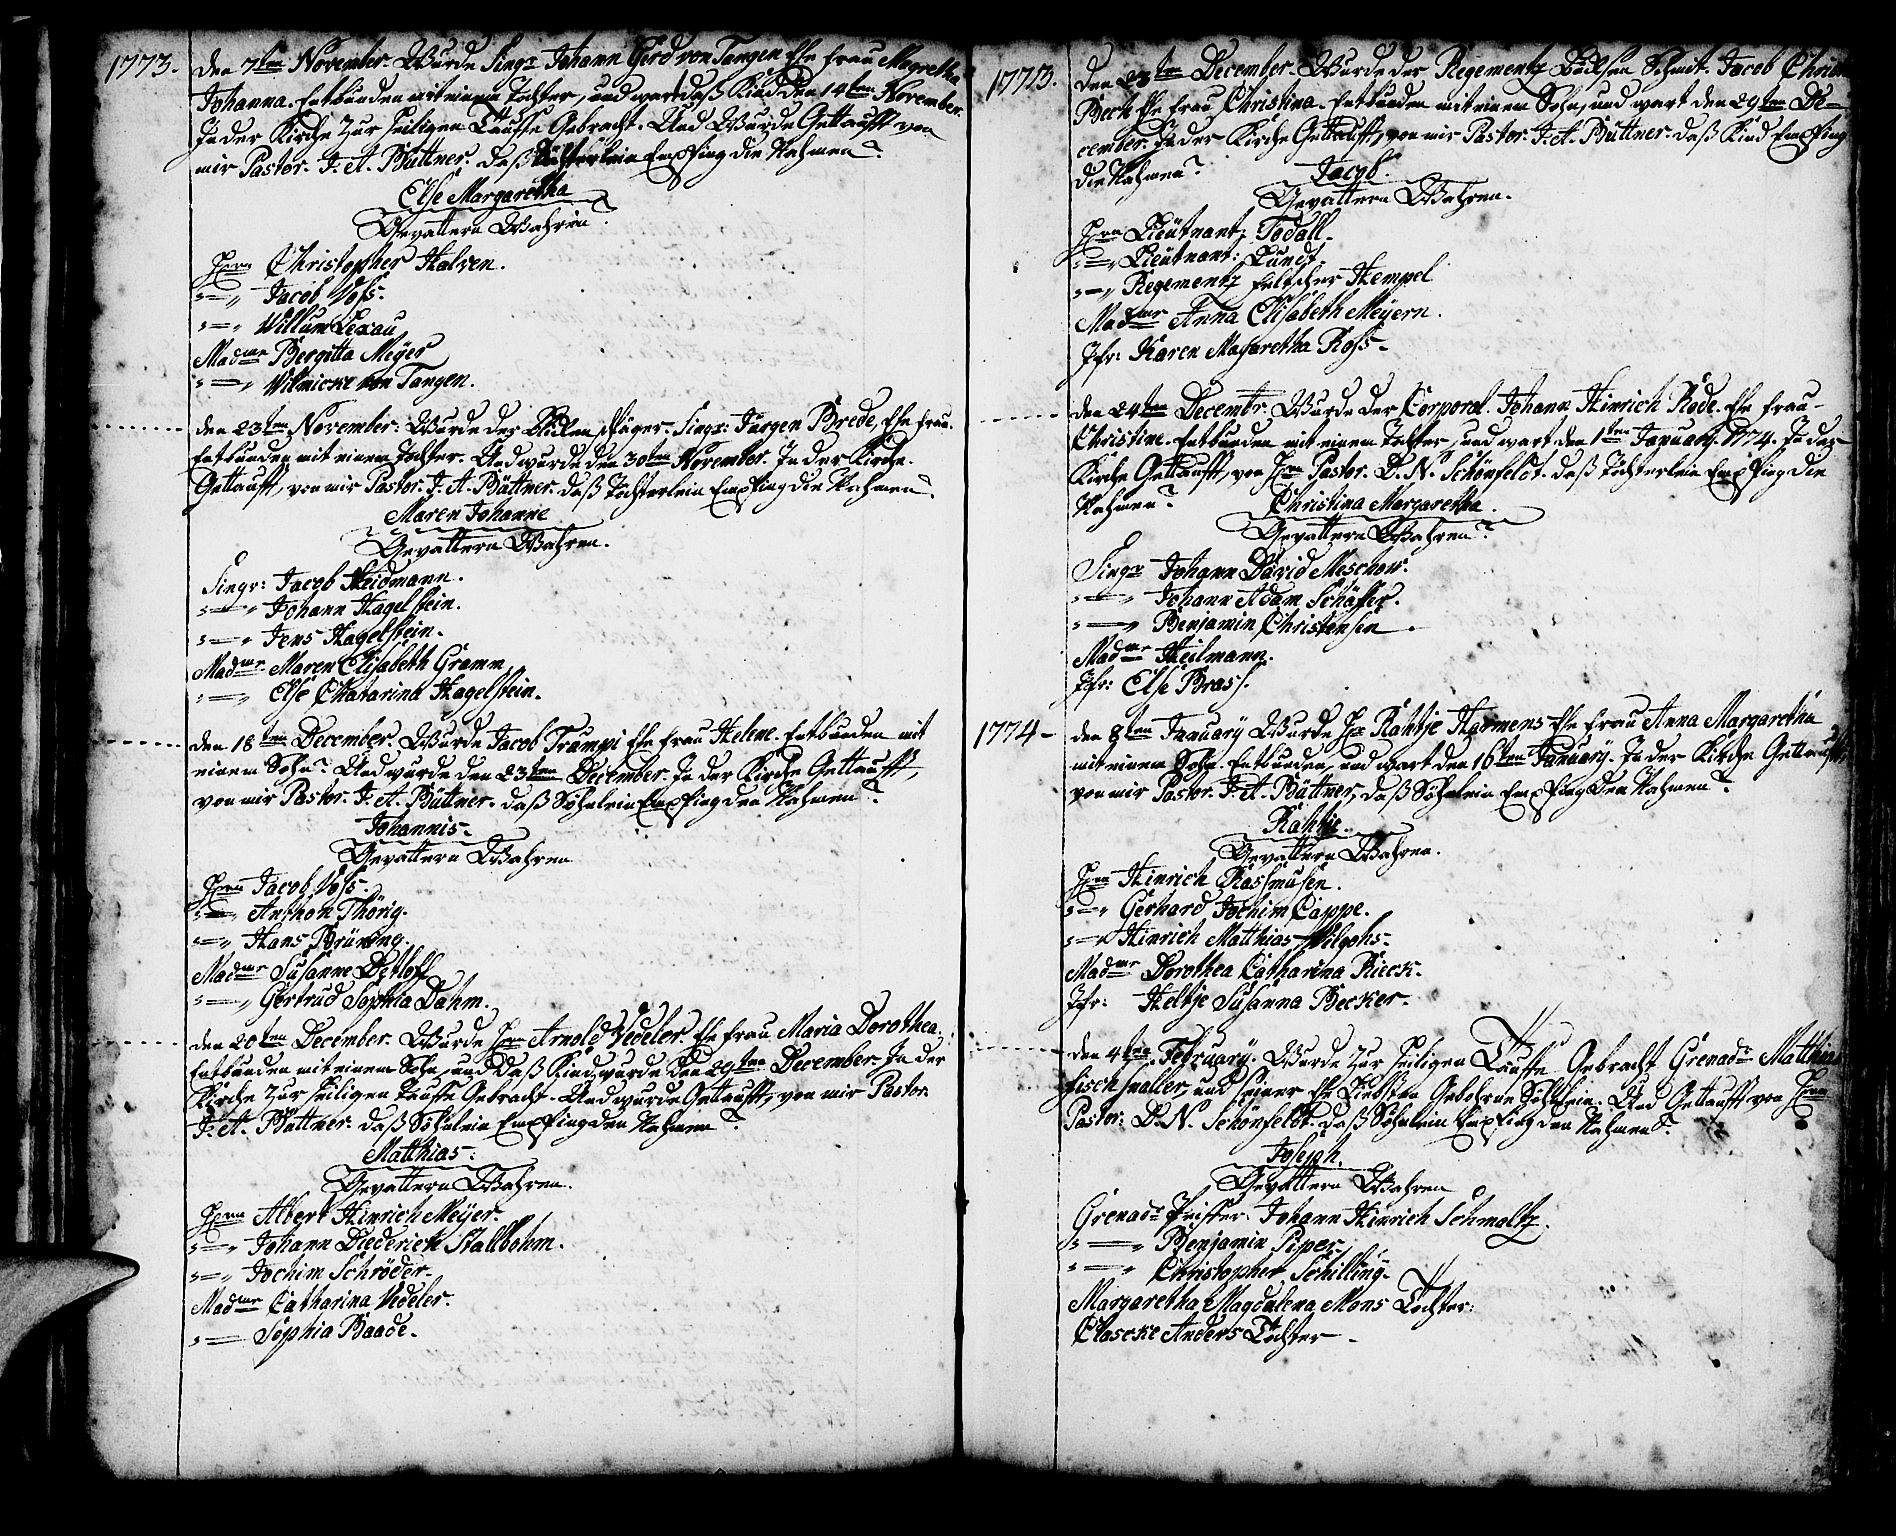 1773. Den 7ten November. Wurde Singr Johann Gerd von Tangen Ehe Frau Magretha
Johanna. Entbunden mit einem Tochter, und wart daß Kind den 14ten November.
In der Kirche zur Heiligen Tauffe Gebracht. Und Wurde Gettaufft von
mir Pastor. J. A. Büttner. daß Töchterlein Empfing die Nahmen
Else Margaretha
Gevattern Wahren
Hrrn Christopher Halven.
" — " Jacob Voss.
" — " Willum Lexau
Madme Bergitta Meyer
" — " Wilmicke von Tangen.
den 23ten November. Wurde der Singr: Jürgen Brede, Ehe Frau.
Entbunden mit einem Tochter. Und wurde den 30ten November. In der Kirche.
Gettaufft, von mir Pastor. J. A. Büttner. daß Töchterlein Empfing die Nahmen.
Maren Johanne
Gevattern Wahren.
Singr: Jacob Heidmann.
" — " Johann Hagelstein.
" — " Jens Hagelstein.
Madme Maren Elisabeth Gramm
" — " Else Chatarina Hagelstein.
den 18ten December. Wurde Jacob Trumpi Ehe Frau Helene. Entbunden mit
einem Sohn. Und wurde den 23ten December. In der Kirche Gettaufft,
von mir Pastor. J. A. Büttner. daß Söhnlein Empfing den Nahmen.
Johannis.
Gevattern Wahren
Hrrn Jacob Voss.
" — " Anthon Thörig.
" — " Hans Brüning.
Madme Susanne Detloff
" — " Gertrud Sophia Dahm.
den 20ten December. Wurde Hrr Arnold Vedeler. Ehe Frau Maria Dorothea.
Entbunden mit einem Sohn, und daß Kind wurde den 29ten December. In der
Kirche zur Heiligen Tauffe Gebracht. Und wurde Gettaufft, von mir Pastor.
J. A. Büttner. daß Söhnlein Empfing den Nahmen.
Matthias.
Gevattern Wahren.
Hrrn Albert Hinrich Meyer.
" — " Johann Diederich Stallbohm.
" — " Jochim Schröder.
Madme Catharina Vedeler.
" — Sophia Baade.
1773. Den 23ten December. Wurde der Regementz Büchsen Schmit. Jacob Chris
Beck Ehe Frau Christina. Entbunden mit einem Sohn, und wart den 29ten De-
cember. In der Kirche Gettaufft, von mir Pastor. J. A. Büttner. daß Kind Empfing
die Nahmen
Jacob.
Gevattern Wahren.
Hrrn Lieutnant: Todall.
" — " Lieutnant: Lundt.
" — " Regementz Feltscher Hempel
Madme Anna Elisabeth Meyern.
Jfr: Karen Magaretha Ross.
den 24ten Decembr. Wurde der Corporel. Johann Hinrich Rode. Ehe Frau
Christine. Entbunden mit einem Tochter, und wart den 1ten January. 1774. In der
Kirche Gettaufft, von Hrrn Pastor. D. N. Schönfeldt. daß Töchterlein Empfing die
Nahmen
Christina Margaretha.
Gevattern Wahren
Singr Johann David Meschow.
" — " Johann Adam Schäffer.
" — " Benjamin Christensen.
Madme Heilmann.
Jfr: Else Brass.
1774 - den 8ten January Wurde Hr Rahtje Harmens Ehe Frau Anna Margaretha
mit einem Sohn Entbunden, und wart den 16ten January. In der Kirche Gettaufft,
von mir Pastor. J. A. Büttner, daß Söhnlein Empfing den Nahmen.
Rahtje.
Gevattern Wahren.
Hrrn Hinrich Rassmusen.
" — " Gerhard Jochim Cappe.
" — " Hinrich Matthias Wilgohs.
Madme Dorothea Catharina Rieck.
Jfr: Heltje Susanna Becker.
den 4ten February. Wurde zur Heiligen Tauffe Gebracht Grenadr Matthias
Fischhaller, und seiner Ehe Liebsten Gebohrne Söhnlein. Und Gettaufft von Hrrn
Pastor: D. N. Schönfeldt. daß Söhnlein Empfing den Nahmen.
Joseph.
Gevattern Wahren
Grenadr Peiffer. Johann Hinrich Schmaltz.
" — " Benjamin Piper
" — " Christopher Schilling.
Margaretha Magdalena Mons Tochter:
Clascke Anders Tochter -